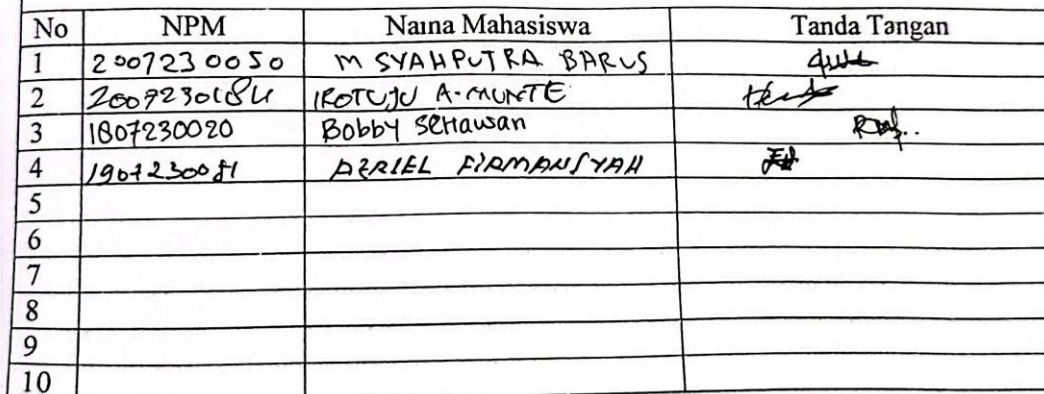 No NPM Nama Mahasiswa Tanda Tangan
1 2007230050 M SYAHPUTRA BARUS
2 2007230184 IROTUJU A-MUNTE
3 1807230020 Bobby Setiawan
4 1907230081 AZRIEL FIRMANSYAH
5
6
7
8
9
10